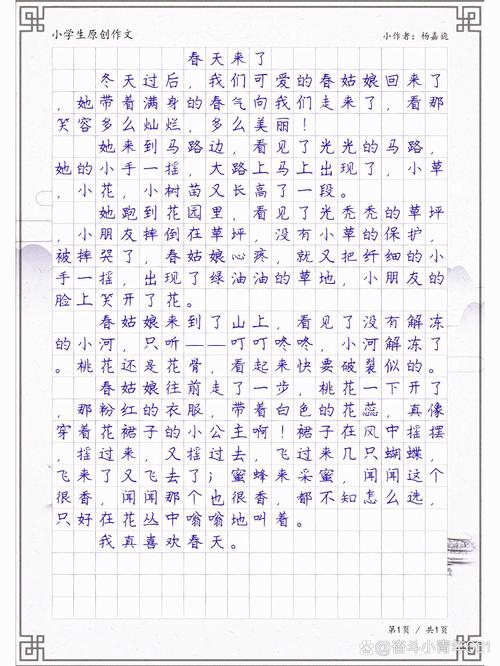 小学生原创作文
小作者：杨嘉旎
春天来了
冬天过后，我们可爱的春姑娘回来了
，她带着满身的春气向我们走来了，看那
笑容多么灿烂，多么美丽！
她来到马路边，看见了光光的马路，
她的小手一摇，大路上马上出现了，小草
，小花，小树苗又长高了一段。
她跑到花园里，看见了光秃秃的草坪
，小朋友摔倒在草坪，没有小草的保护，
被摔哭了，春姑娘心疼，就又把纤细的小
手一摇，出现了绿油油的草地，小朋友的
脸上笑开了花。
春姑娘来到了山上，看见了没有解冻
的小河，只听——叮叮咚咚，小河解冻了
。桃花还是花骨，看起来快要破裂似的。
春姑娘往前走了一步，桃花一下开了
，那粉红的衣服，带着白色的花蕊，真像
穿着花裙子的小公主啊！裙子在风中摇摆
，摇过来，又摇过去，飞过来几只蝴蝶，
飞来了又飞去了；蜜蜂来采蜜，闻闻这个
很香，闻闻那个也很香，都不知怎么选，
只好在花丛中嗡嗡地叫着。
我真喜欢春天。
第1页 / 共1页